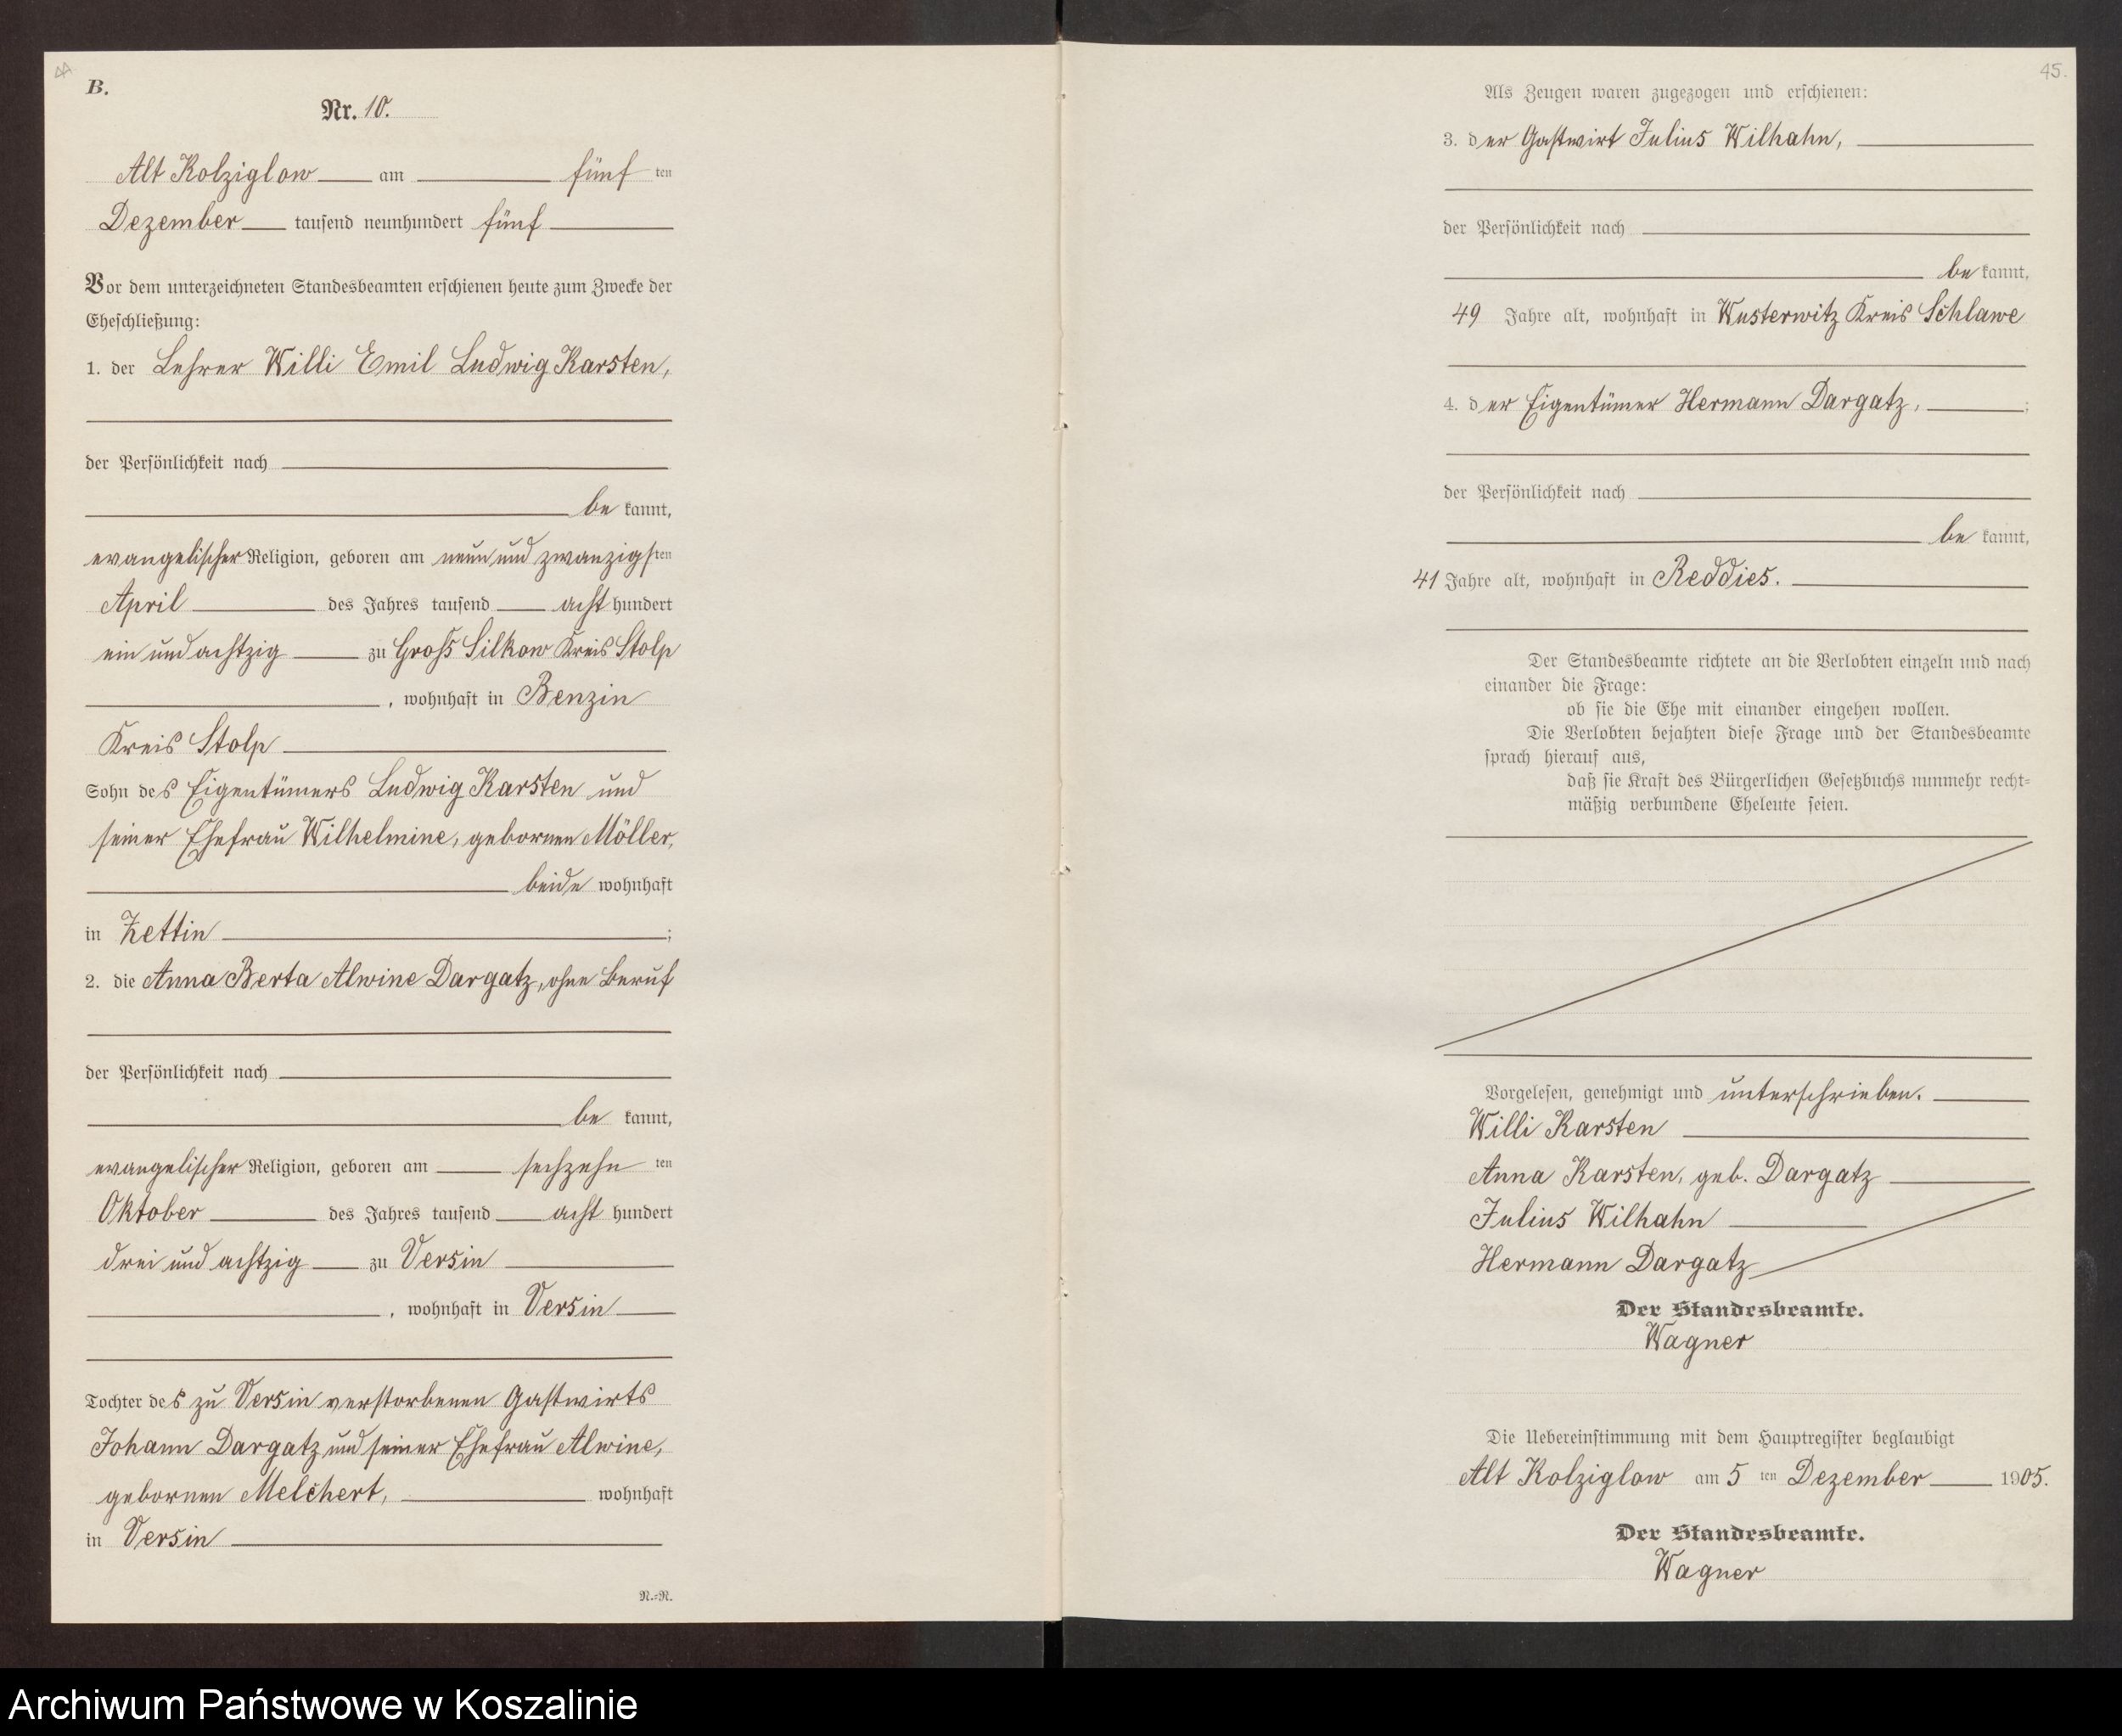 44
B.
Nr. 10.
Alt Kolziglow am fünf ten
Dezember tausend neunhundert fünf
Vor dem unterzeichneten Standesbeamten erschienen heute zum Zwecke der
Eheschließung:
1. der Lehrer Willi Emil Ludwig Karsten,
der Persönlichkeit nach
be kannt,
evangelischer Religion, geboren am neun und zwanzigsten
April des Jahres tausend acht hundert
ein und achtzig zu Groß Silkow Kreis Stolp
, wohnhaft in Benzin
Kreis Stolp
Sohn des Eigentümers Ludwig Karsten und
seiner Ehefrau Wilhelmine, gebornen Möller,
beide wohnhaft
in Zettin ;
2. die Anna Berta Alwine Dargatz, ohne Beruf
der Persönlichkeit nach
be kannt,
evangelischer Religion, geboren am sechzehn ten
Oktober des Jahres tausend acht hundert
drei und achtzig zu Versin
, wohnhaft in Versin
Tochter des zu Versin verstorbenen Gastwirts
Johann Dargatz und seiner Ehefrau Alwine,
gebornen Melchert, wohnhaft
in Versin
N.=N.
45.
Als Zeugen waren zugezogen und erschienen:
3. der Gastwirt Julius Wilhahn,
der Persönlichkeit nach
be kannt,
49 Jahre alt, wohnhaft in Wusterwitz Kreis Schlawe
4. der Eigentümer Hermann Dargatz, ;
der Persönlichkeit nach
be kannt,
41 Jahre alt, wohnhaft in Reddies.
Der Standesbeamte richtete an die Verlobten einzeln und nach
einander die Frage:
ob sie die Ehe mit einander eingehen wollen.
Die Verlobten bejahten diese Frage und der Standesbeamte
sprach hierauf aus,
daß sie Kraft des Bürgerlichen Gesetzbuchs nunmehr recht=
mäßig verbundene Eheleute seien.
Vorgelesen, genehmigt und unterschrieben.
Willi Karsten
Anna Karsten, geb. Dargatz
Julius Wilhahn
Hermann Dargatz
Der Standesbeamte.
Wagner
Die Uebereinstimmung mit dem Hauptregister beglaubigt
Alt Kolziglow am 5 ten Dezember 1905.
Der Standesbeamte.
Wagner
Archiwum Państwowe w Koszalinie